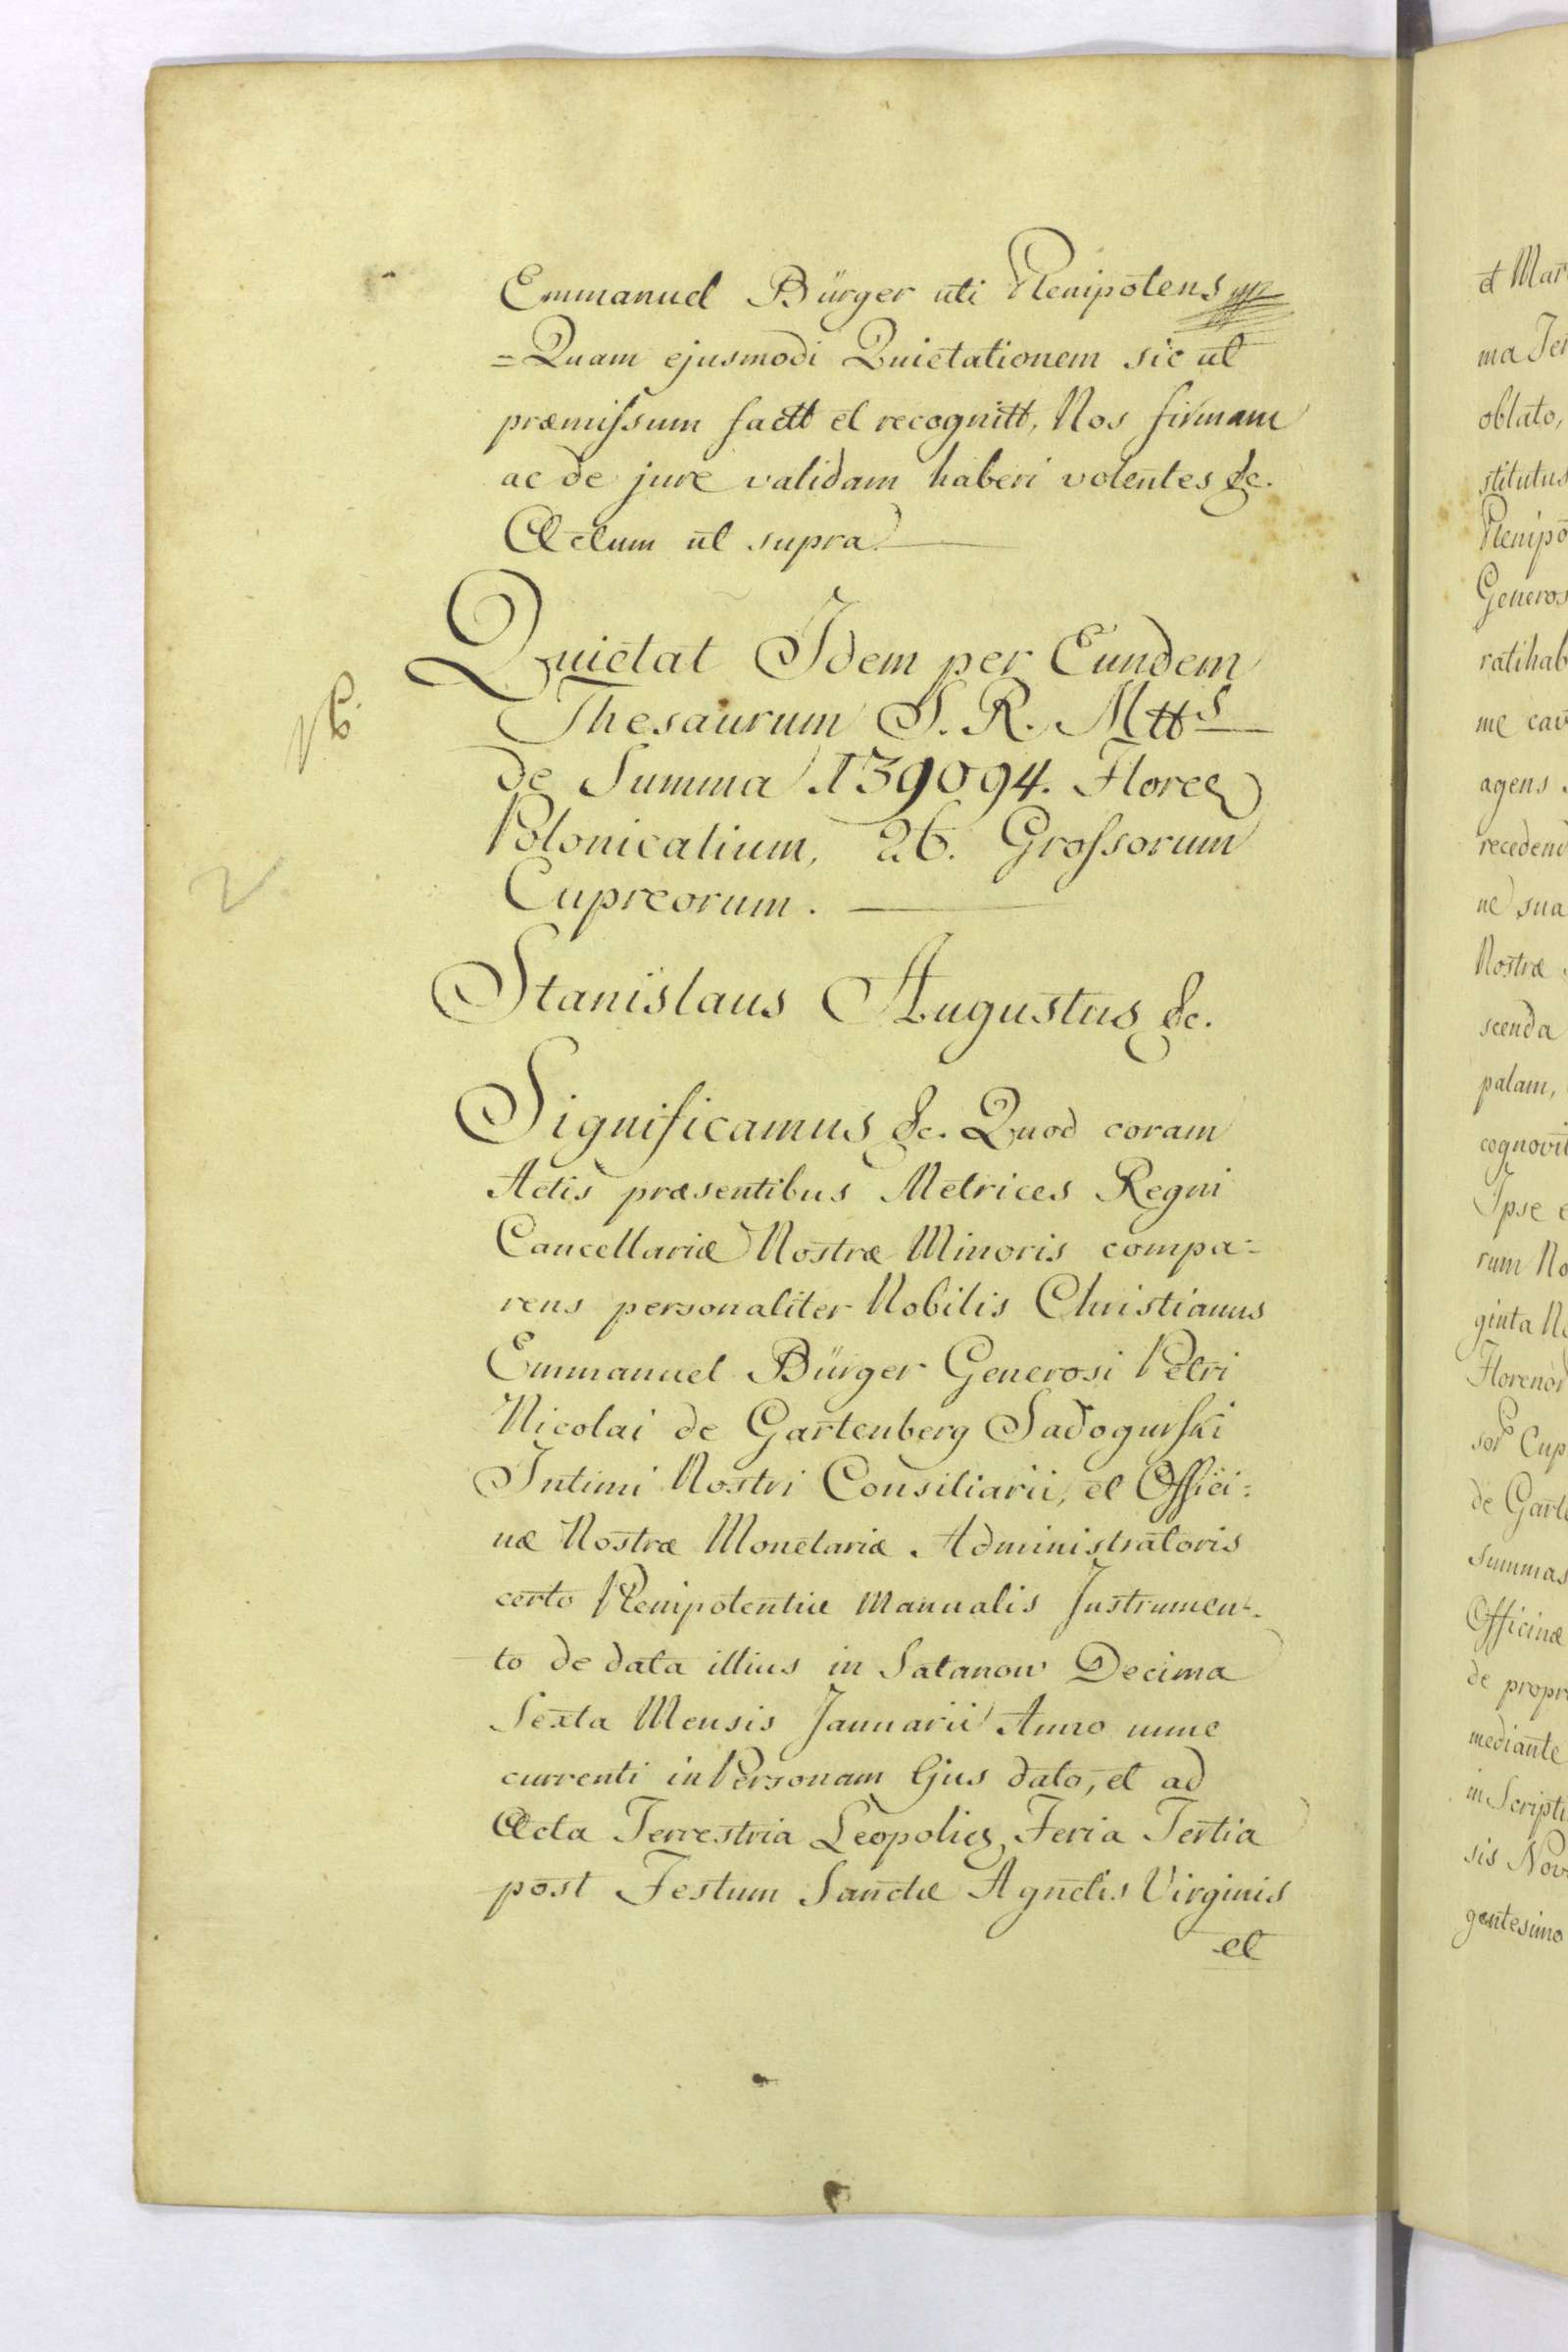 Emmanuel Bürger uti Plenipotens
=Quam ejusmodi Quietationem sic ut
præmissum factt et recognitt, Nos firmam
ac de jure validam haberi volentes &c.
Actum ut supra.
Quietat Idem per Eundem
Thesaurum S. R. Mtts
de Summa 139094. Floren
Polonicalium, 26. Grossorum
Cupreorum.
2
Stanislaus Augustus &c.
Significamus &c. Quod coram
Actis præsentibus Metrices Regni
Cancellariæ Nostræ Minoris compa=
rens personaliter Nobilis Christianus
Emmanuel Bürger Generosi Petri
Nicolai de Gartenberg Sadogurski
Intimi Nostri Consiliarii, et Offici=
næ Nostræ Monetariæ Administratoris
certo Plenipotentiæ Manualis Instrumen=
to de data illius in Satanow Decima
Sexta Mensis Januarii Anno nunc
currenti in Personam Ejus dato, et ad
Acta Terrestria Leopolien Feria Tertia
post Festum Sanctæ Agnetis Virginis
et
et Mar
ma Ter
oblato,
stitutus
Plenipo
Generos
ratihab
me cav
agens
recedend
ne sua
Nostræ
scenda
palam,
cognovit
Ipse e
rum No
ginta No
Florenor
sor Cup
de Garte
Summas
Officinæ
de propri
mediante
in Scripti
sis Nov
gentesimo